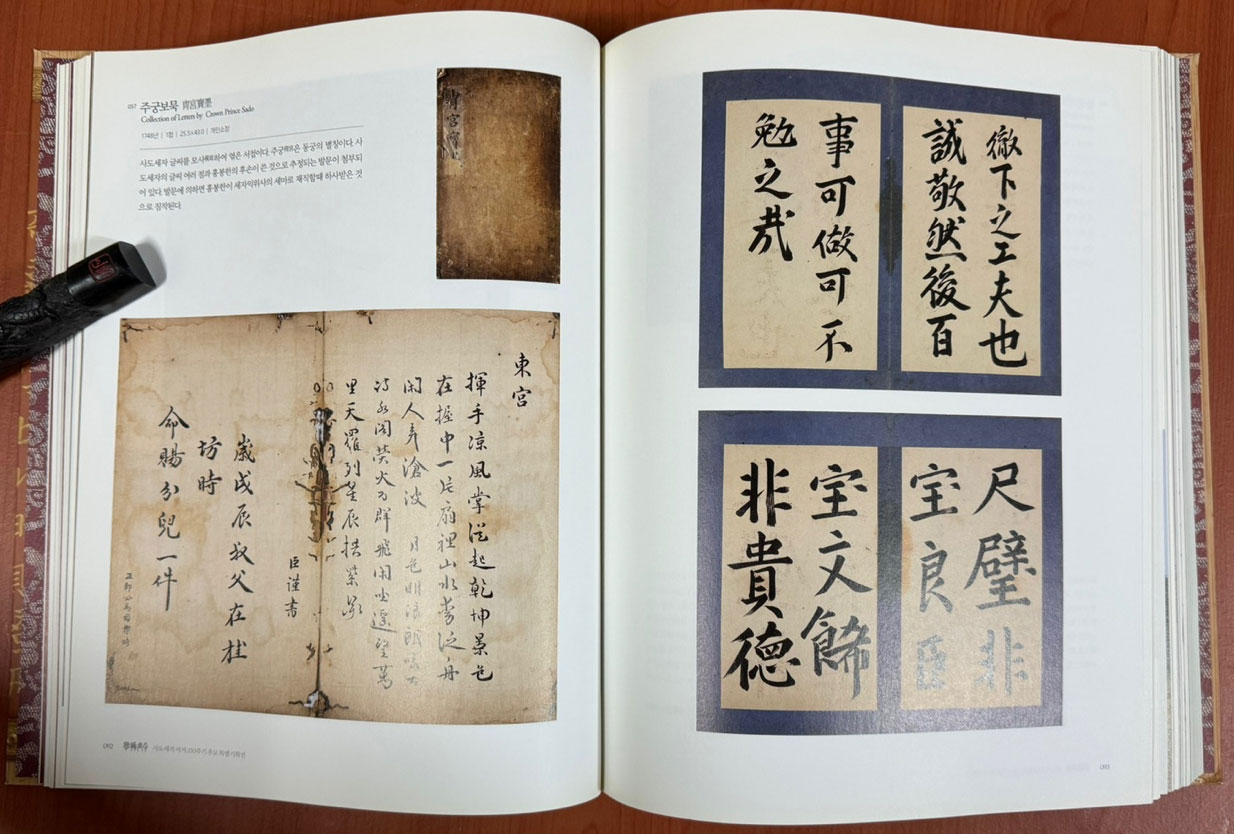 057 주궁보묵 胄宮寶墨
Collection of Letters by Crown Prince Sado
1748년 | 1첩 | 25.5×43.0 | 개인소장
사도세자 글씨를 모사模寫하여 엮은 서첩이다. 주궁胄宮은 동궁의 별칭이다. 사
도세자의 글씨 여러 점과 홍봉한의 후손이 쓴 것으로 추정되는 발문이 첨부되
어 있다. 발문에 의하면 홍봉한이 세자익위사의 세마로 재직할 때 하사받은 것
으로 짐작된다.
東宮
揮手凉風掌從起乾坤景色
在握中一片扇裡山水李泛舟
閑人弄滄波 月色明
閣熒火爲群飛閑坐遙望萬
里天羅列星辰拱紫
臣謹書
歲戊辰叔父在桂
坊時
命賜分兒一件
徹下之工夫也
誠敬然後百
事可做可不
勉之哉
尺璧非
宝良臣
宝文飾
非貴德
092 사도세자 서거 250주기 추모 특별기획전
093